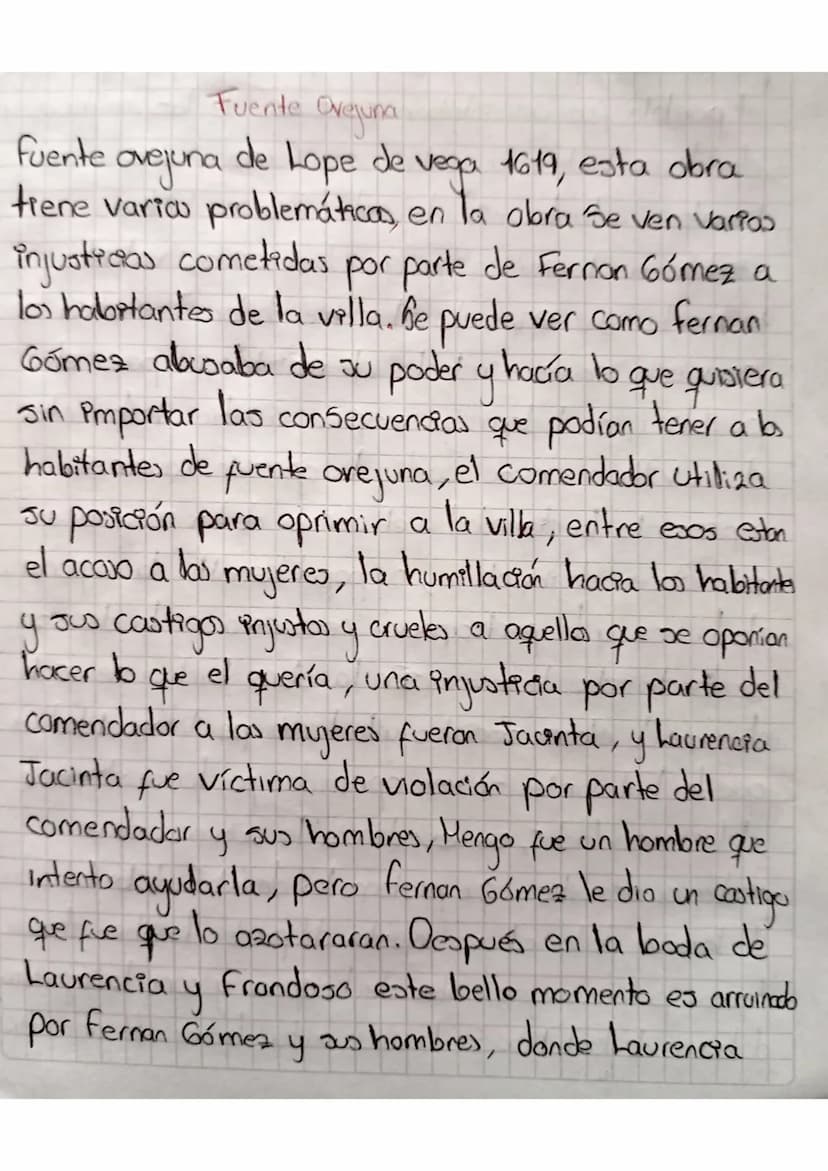 Fuente Ovejuna
fuente ovejuna de Lope de vega 1619, esta obra
tiene varias problemáticas, en la obra se ven varias
injusticias cometidas por parte de Fernan Gómez a
los habitantes de la villa. Se puede ver como fernan
Gómez abusaba de su poder y hacía lo que quisiera
sin importar las consecuencias que podían tener a los
habitantes de fuente ovejuna, el comendador utiliza
su posición para oprimir a la villa, entre esos estan
el acaso a las mujeres, la humillación hacia los habitantes
y sus castigos injustos y crueles a aquellos que se oponian
hacer lo que el quería, una injusticia por parte del
comendador a las mujeres fueron Jacinta, y Laurencia
Jacinta fue víctima de violación por parte del
comendador y sus hombres, Mengo fue un hombre que
intento ayudarla, pero fernan Gómez le dio un castigo
que fue que lo azotararan. Después en la boda de
Laurencia y Frondoso este bello momento es arruinado
por fernan Gómez y sus hombres, donde Laurencia